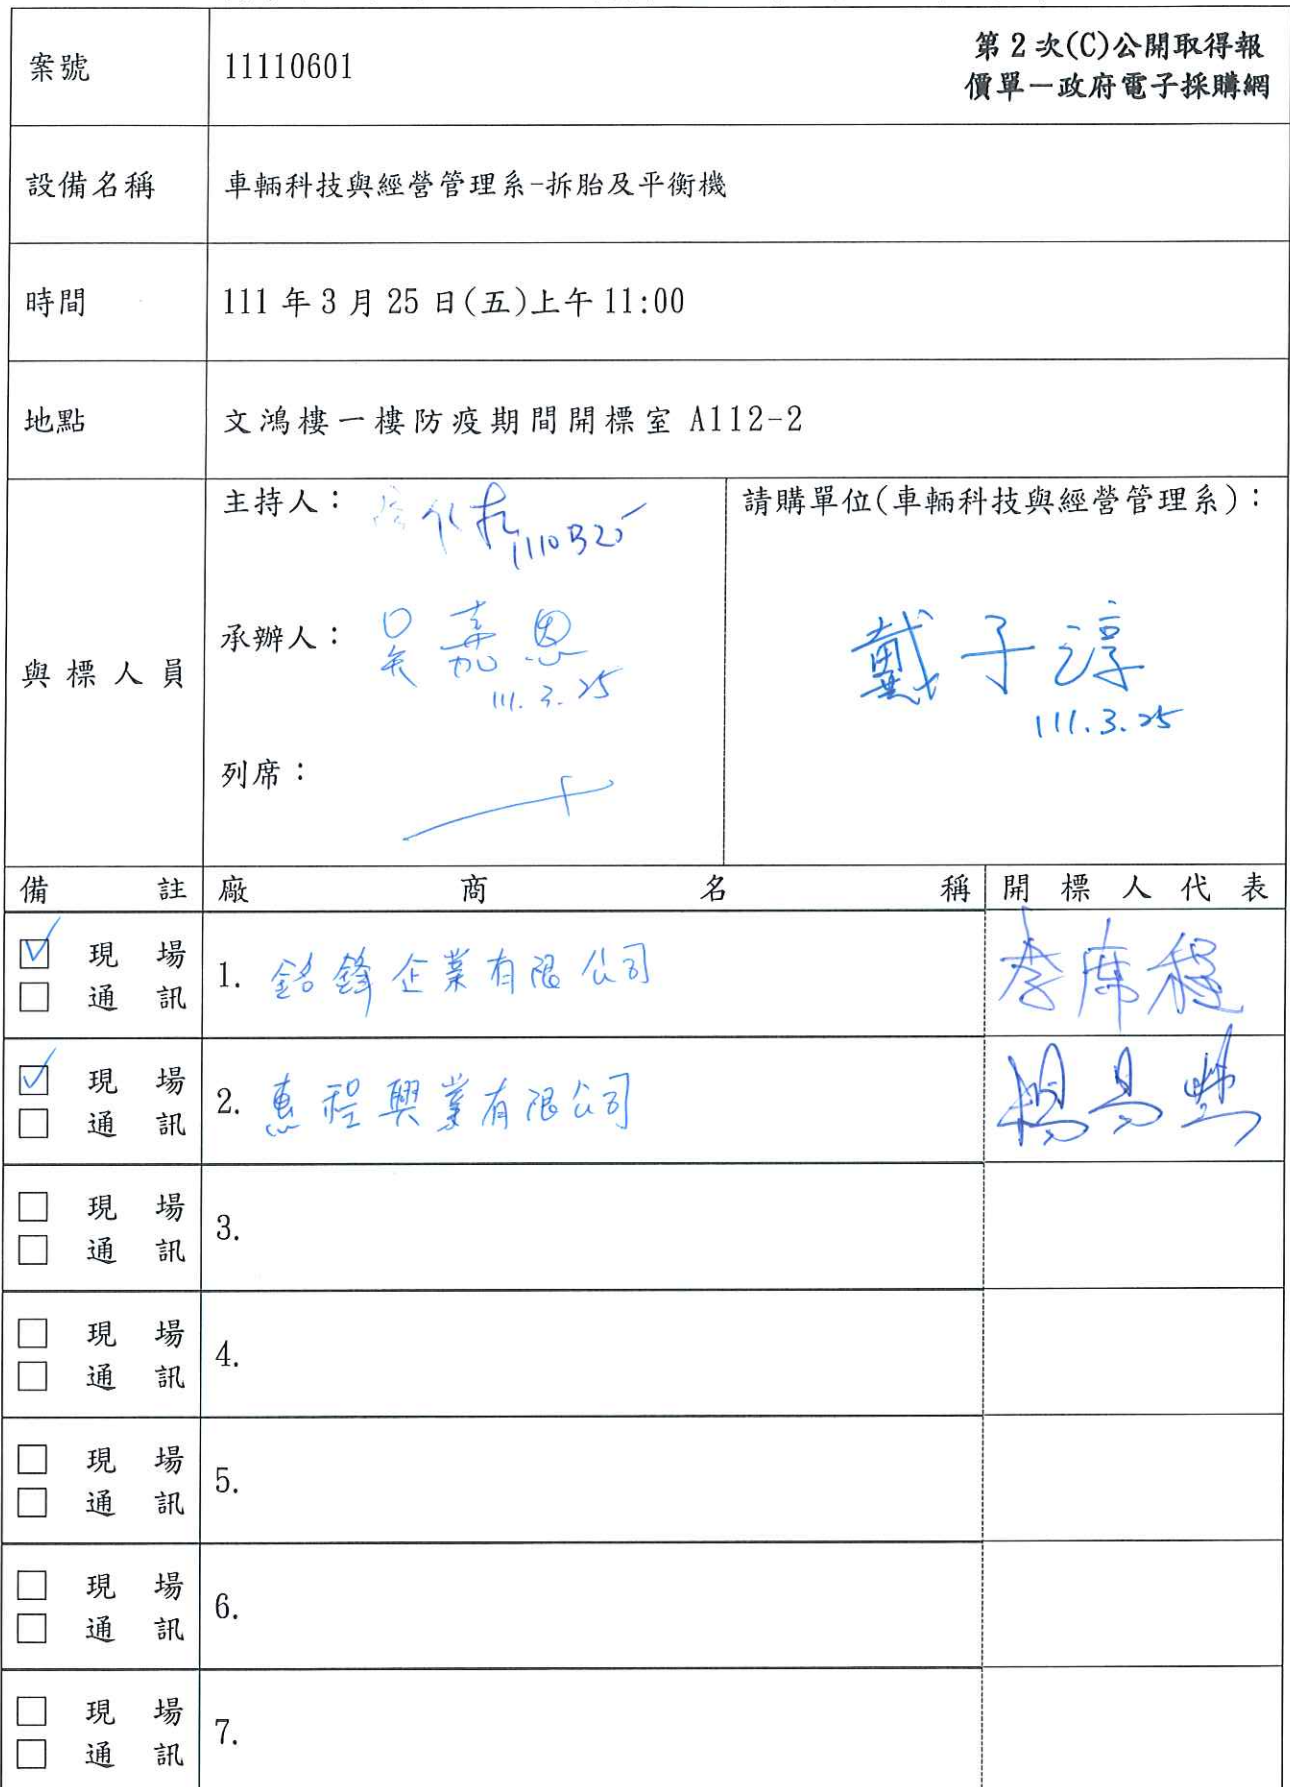 案號
11110601
第 2 次(C)公開取得報
價單－政府電子採購網
設備名稱
車輛科技與經營管理系-拆胎及平衡機
時間
111 年 3 月 25 日(五)上午 11:00
地點
文鴻樓一樓防疫期間開標室 A112-2
與標人員
主持人：
1110325
承辦人： 吳嘉恩
111.3.25
列席：
請購單位(車輛科技與經營管理系)：
戴子淳
111.3.25
備 註 廠 商 名 稱 開 標 人 代 表
☑ 現 場
☐ 通 訊
1. 銘鋒企業有限公司
李席程
☑ 現 場
☐ 通 訊
2. 惠程興業有限公司
☐ 現 場
☐ 通 訊
3.
☐ 現 場
☐ 通 訊
4.
☐ 現 場
☐ 通 訊
5.
☐ 現 場
☐ 通 訊
6.
☐ 現 場
☐ 通 訊
7.